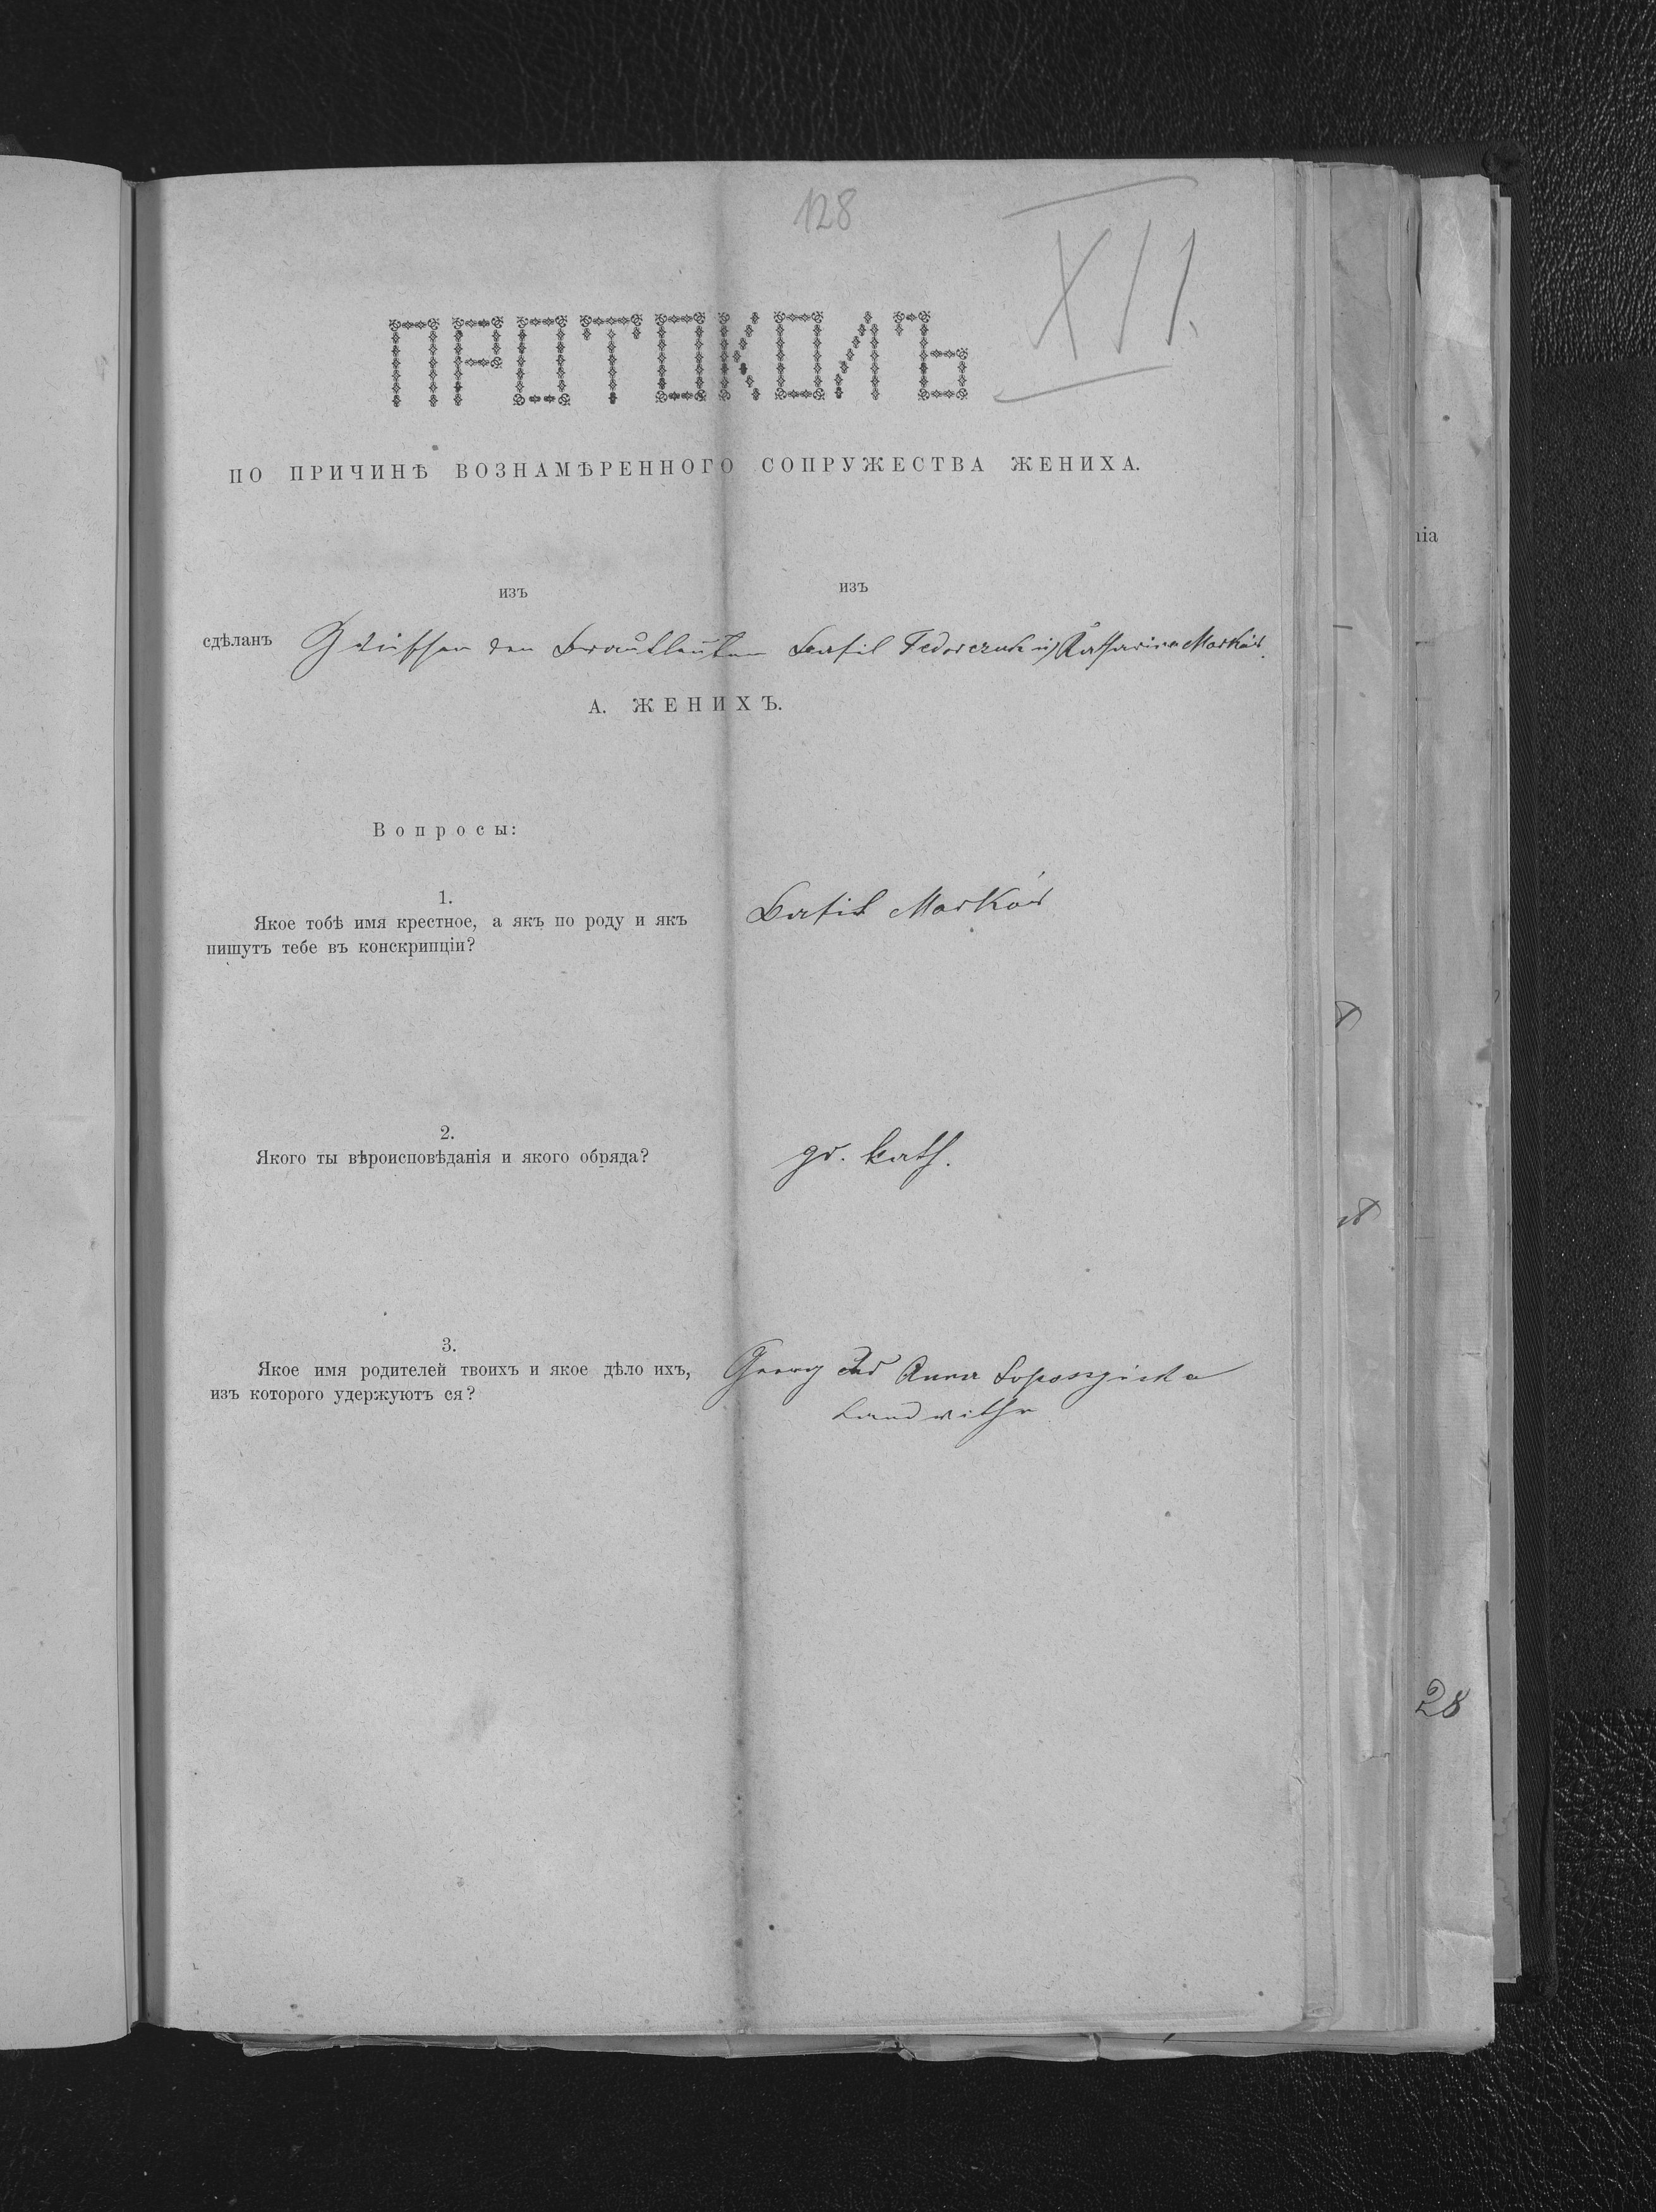 128
XII.
ПРОТОКОЛЪ
ПО ПРИЧИНѢ ВОЗНАМѢРЕННОГО СОПРУЖЕСТВА ЖЕНИХА.
изъ изъ
сдѣланъ Zwischen den Brautleuten Basil Fedorczuk u Katharina Marków.
А. ЖЕНИХЪ.
Вопросы:
1.
Якое тобѣ имя крестное, а якъ по роду и якъ
пишутъ тебе въ конскрипціи?
Basil Marków
2.
Якого ты вѣроисповѣданія и якого обряда?
gr. kath.
3.
Якое имя родителей твоихъ и якое дѣло ихъ,
изъ которого удержуютъ ся?
Georg und Anna
Landwirthe
nia
28